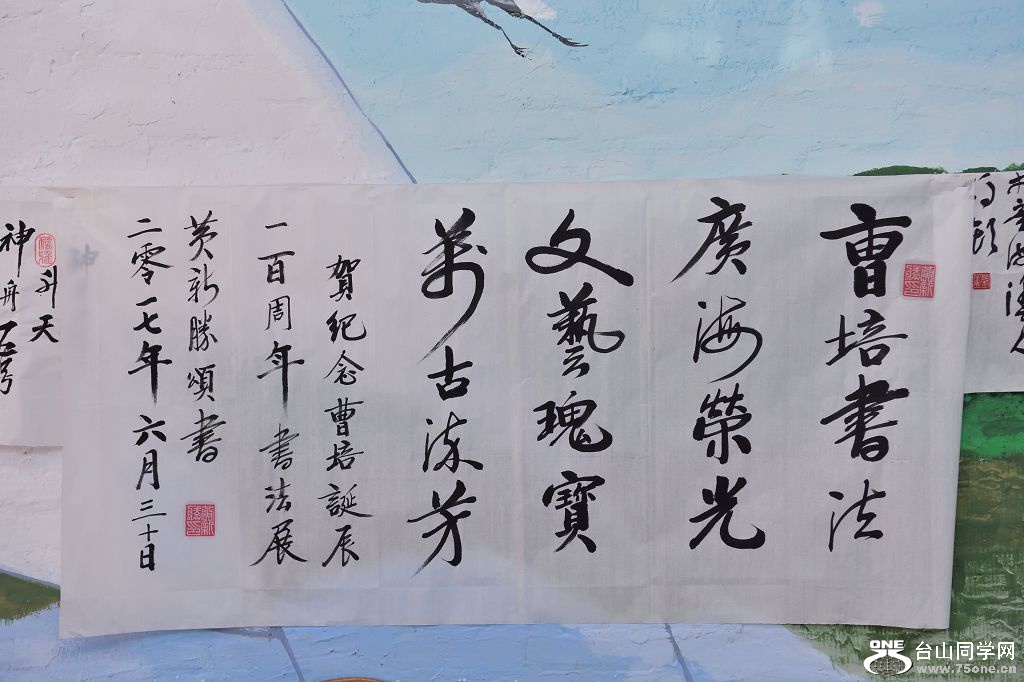 曹培書法
廣海榮光
文藝瑰寶
萬古流芳
賀紀念曹培誕辰
一百周年書法展
黄新勝頌書
二零一七年六月三十日
升天
神舟
ONE
台山同学网
www.75one.cn